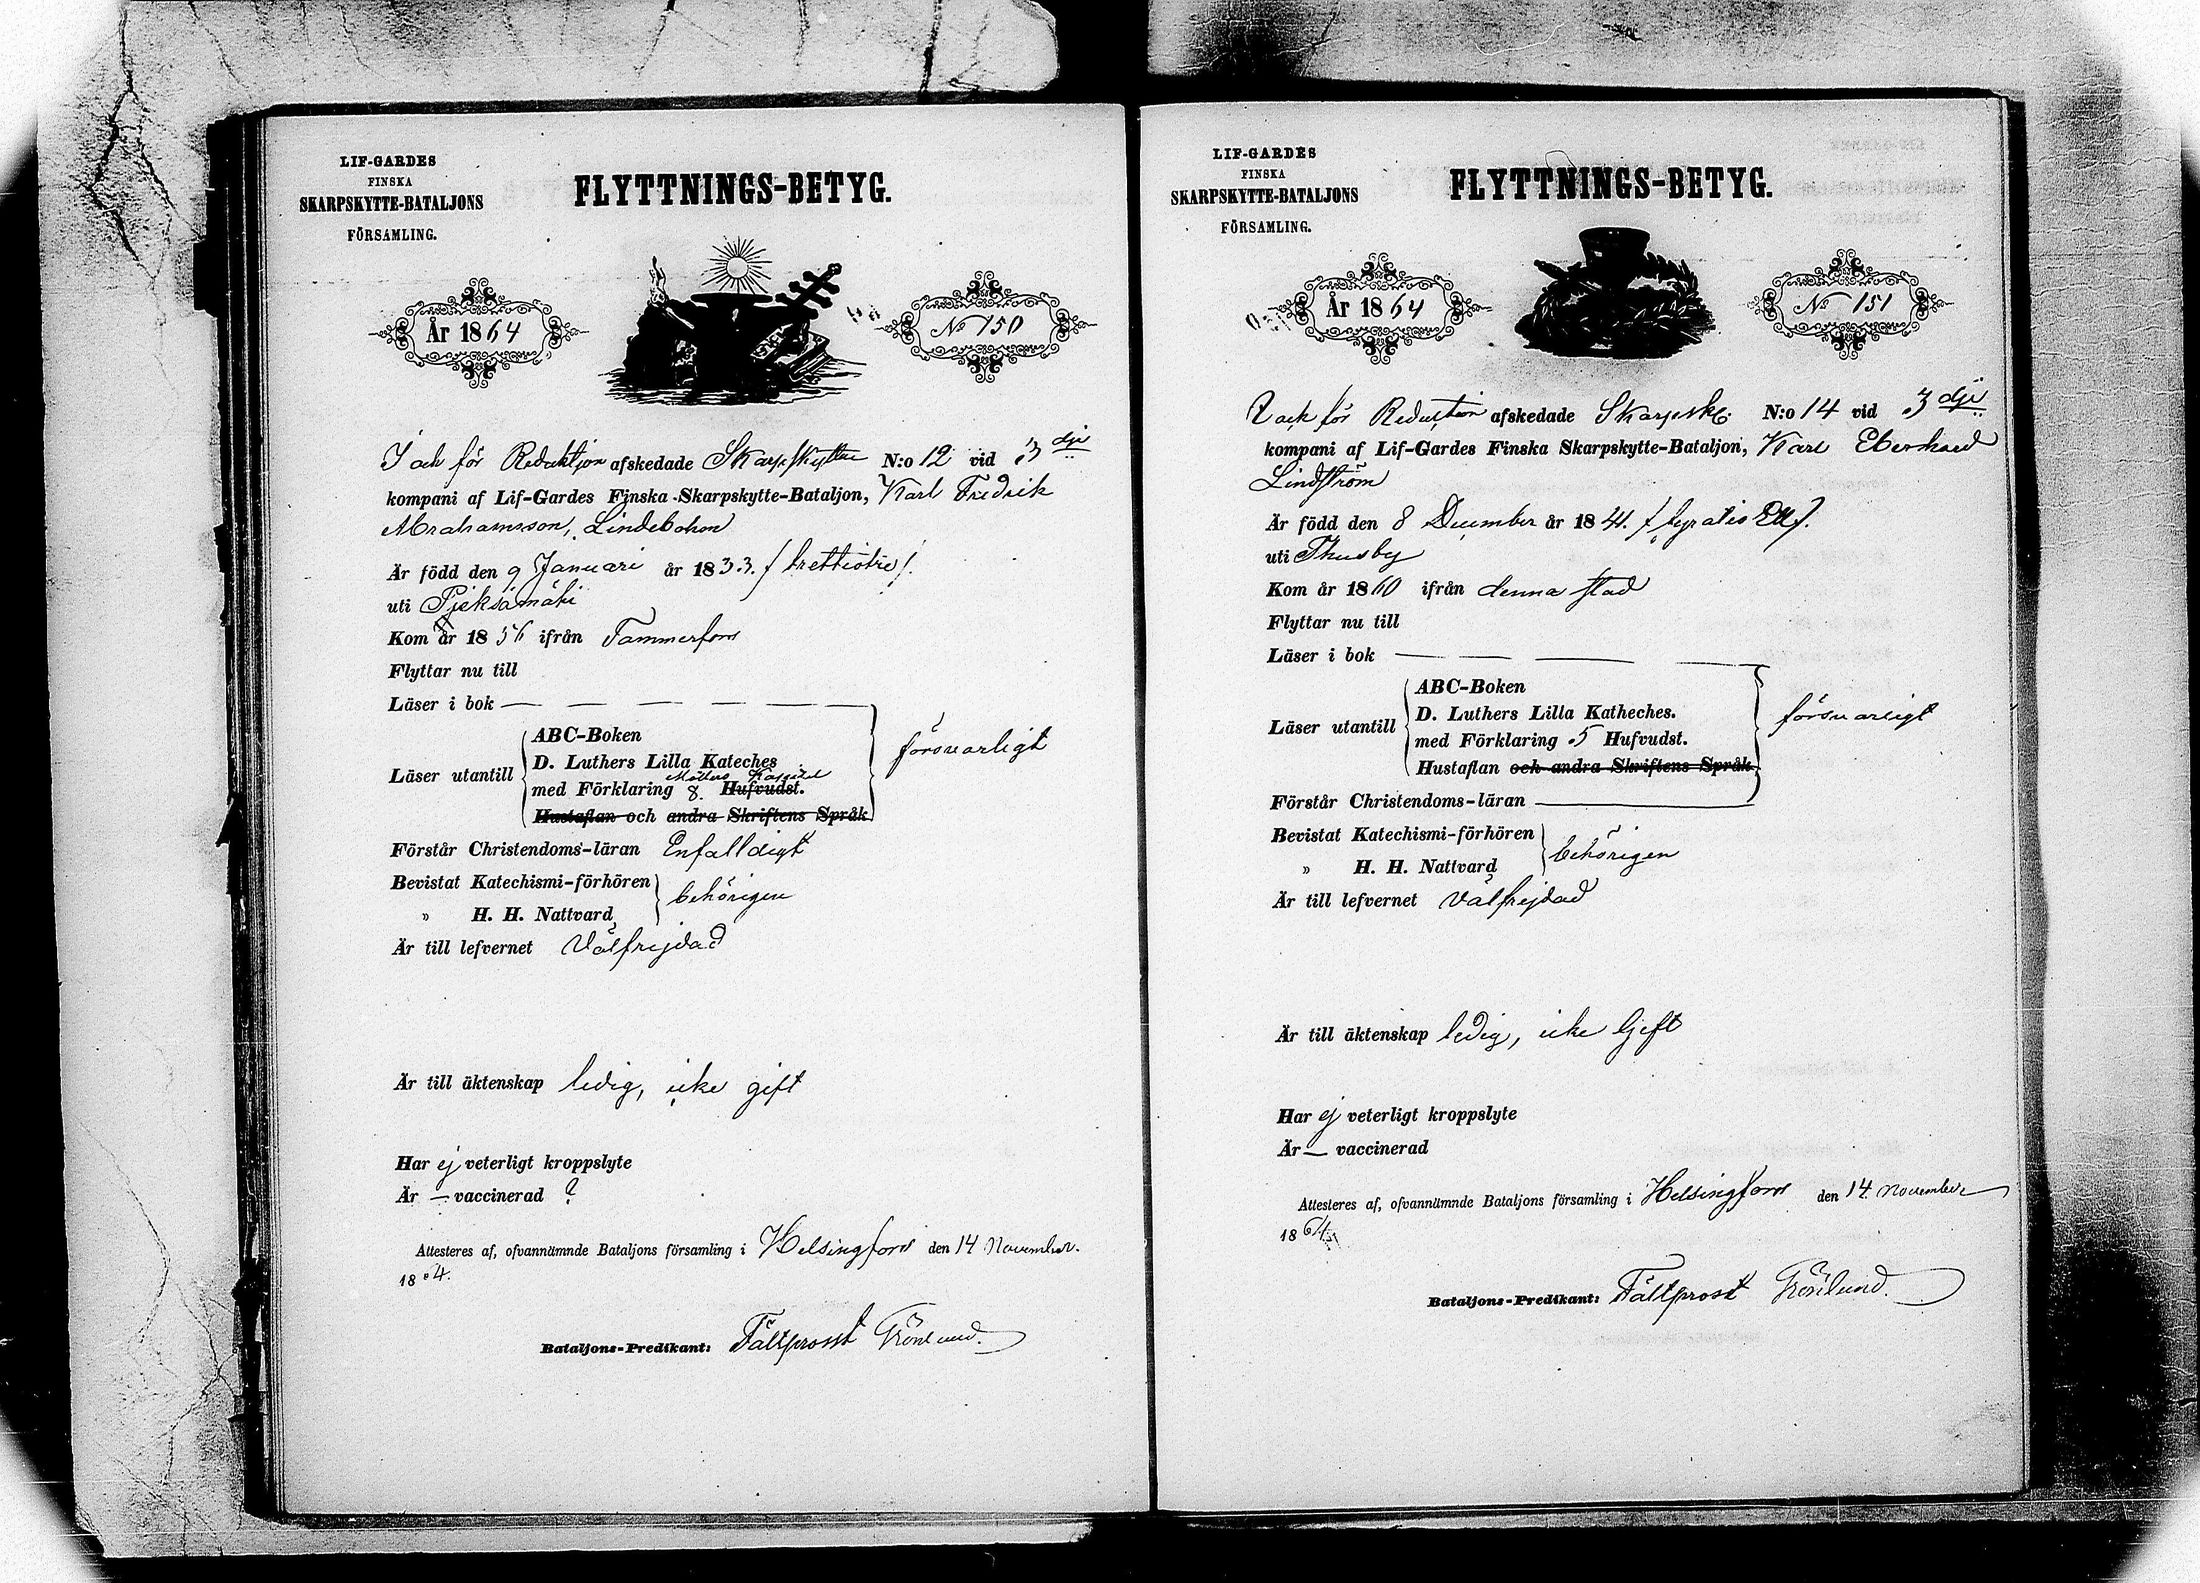 LIF-GARDES
FINSKA
SKARPSKYTTE-BATALJONS
FÖRSAMLING.
FLYTTNINGS-BETYG.
År 1864
No 150
I och för Reduktion afskedade Skarpskytten N:o 12 vid 3 dje
kompani af Lif-Gardes Finska Skarpskytte-Bataljon, Karl Fredrik
Abrahamsson, Lindebohm
Är född den 9 Januari år 1833. / trettiotre /.
uti Pjeksämäki
Kom år 1856 ifrån Tammerfors
Flyttar nu till
Läser i bok
ABC-Boken
D. Luthers Lilla Kateches
Läser utantill försvarligt
med Förklaring 8 Hufvudst.
Hustaflan och andra Skriftens Språk
Förstår Christendoms-läran Enfalldigt
Bevistat Katechismi-förhören
behörigen
" H. H. Nattvard
Är till lefvernet Välfrejdad
Är till äktenskap ledig, icke gift
Har ej veterligt kroppslyte
Är — vaccinerad ?
Attesteres af, ofvannämnde Bataljons församling i Helsingfors den 14 November.
1864.
Bataljons-Predikant: Fältprost Grönlund.
LIF-GARDES
FINSKA
SKARPSKYTTE-BATALJONS
FÖRSAMLING.
FLYTTNINGS-BETYG.
År 1864
No 151
I och för Reduktion afskedade Skarpsk. N:o 14 vid 3 dje
kompani af Lif-Gardes Finska Skarpskytte-Bataljon, Karl Eberhard
Lindström
Är född den 8 December år 1841. / fyratio Ett /.
uti Thusby
Kom år 1860 ifrån denna stad
Flyttar nu till
Läser i bok
ABC-Boken
D. Luthers Lilla Katheches.
Läser utantill försvarligt
med Förklaring 5 Hufvudst.
Hustaflan och andra Skriftens Språk
Förstår Christendoms-läran
Bevistat Katechismi-förhören
behörigen
" H. H. Nattvard
Är till lefvernet välfrejdad
Är till äktenskap ledig, icke Gift
Har ej veterligt kroppslyte
Är — vaccinerad
Attesteres af, ofvannämnde Bataljons församling i Helsingfors den 14 November
1864.
Bataljons-Predikant: Fältprost Grönlund.